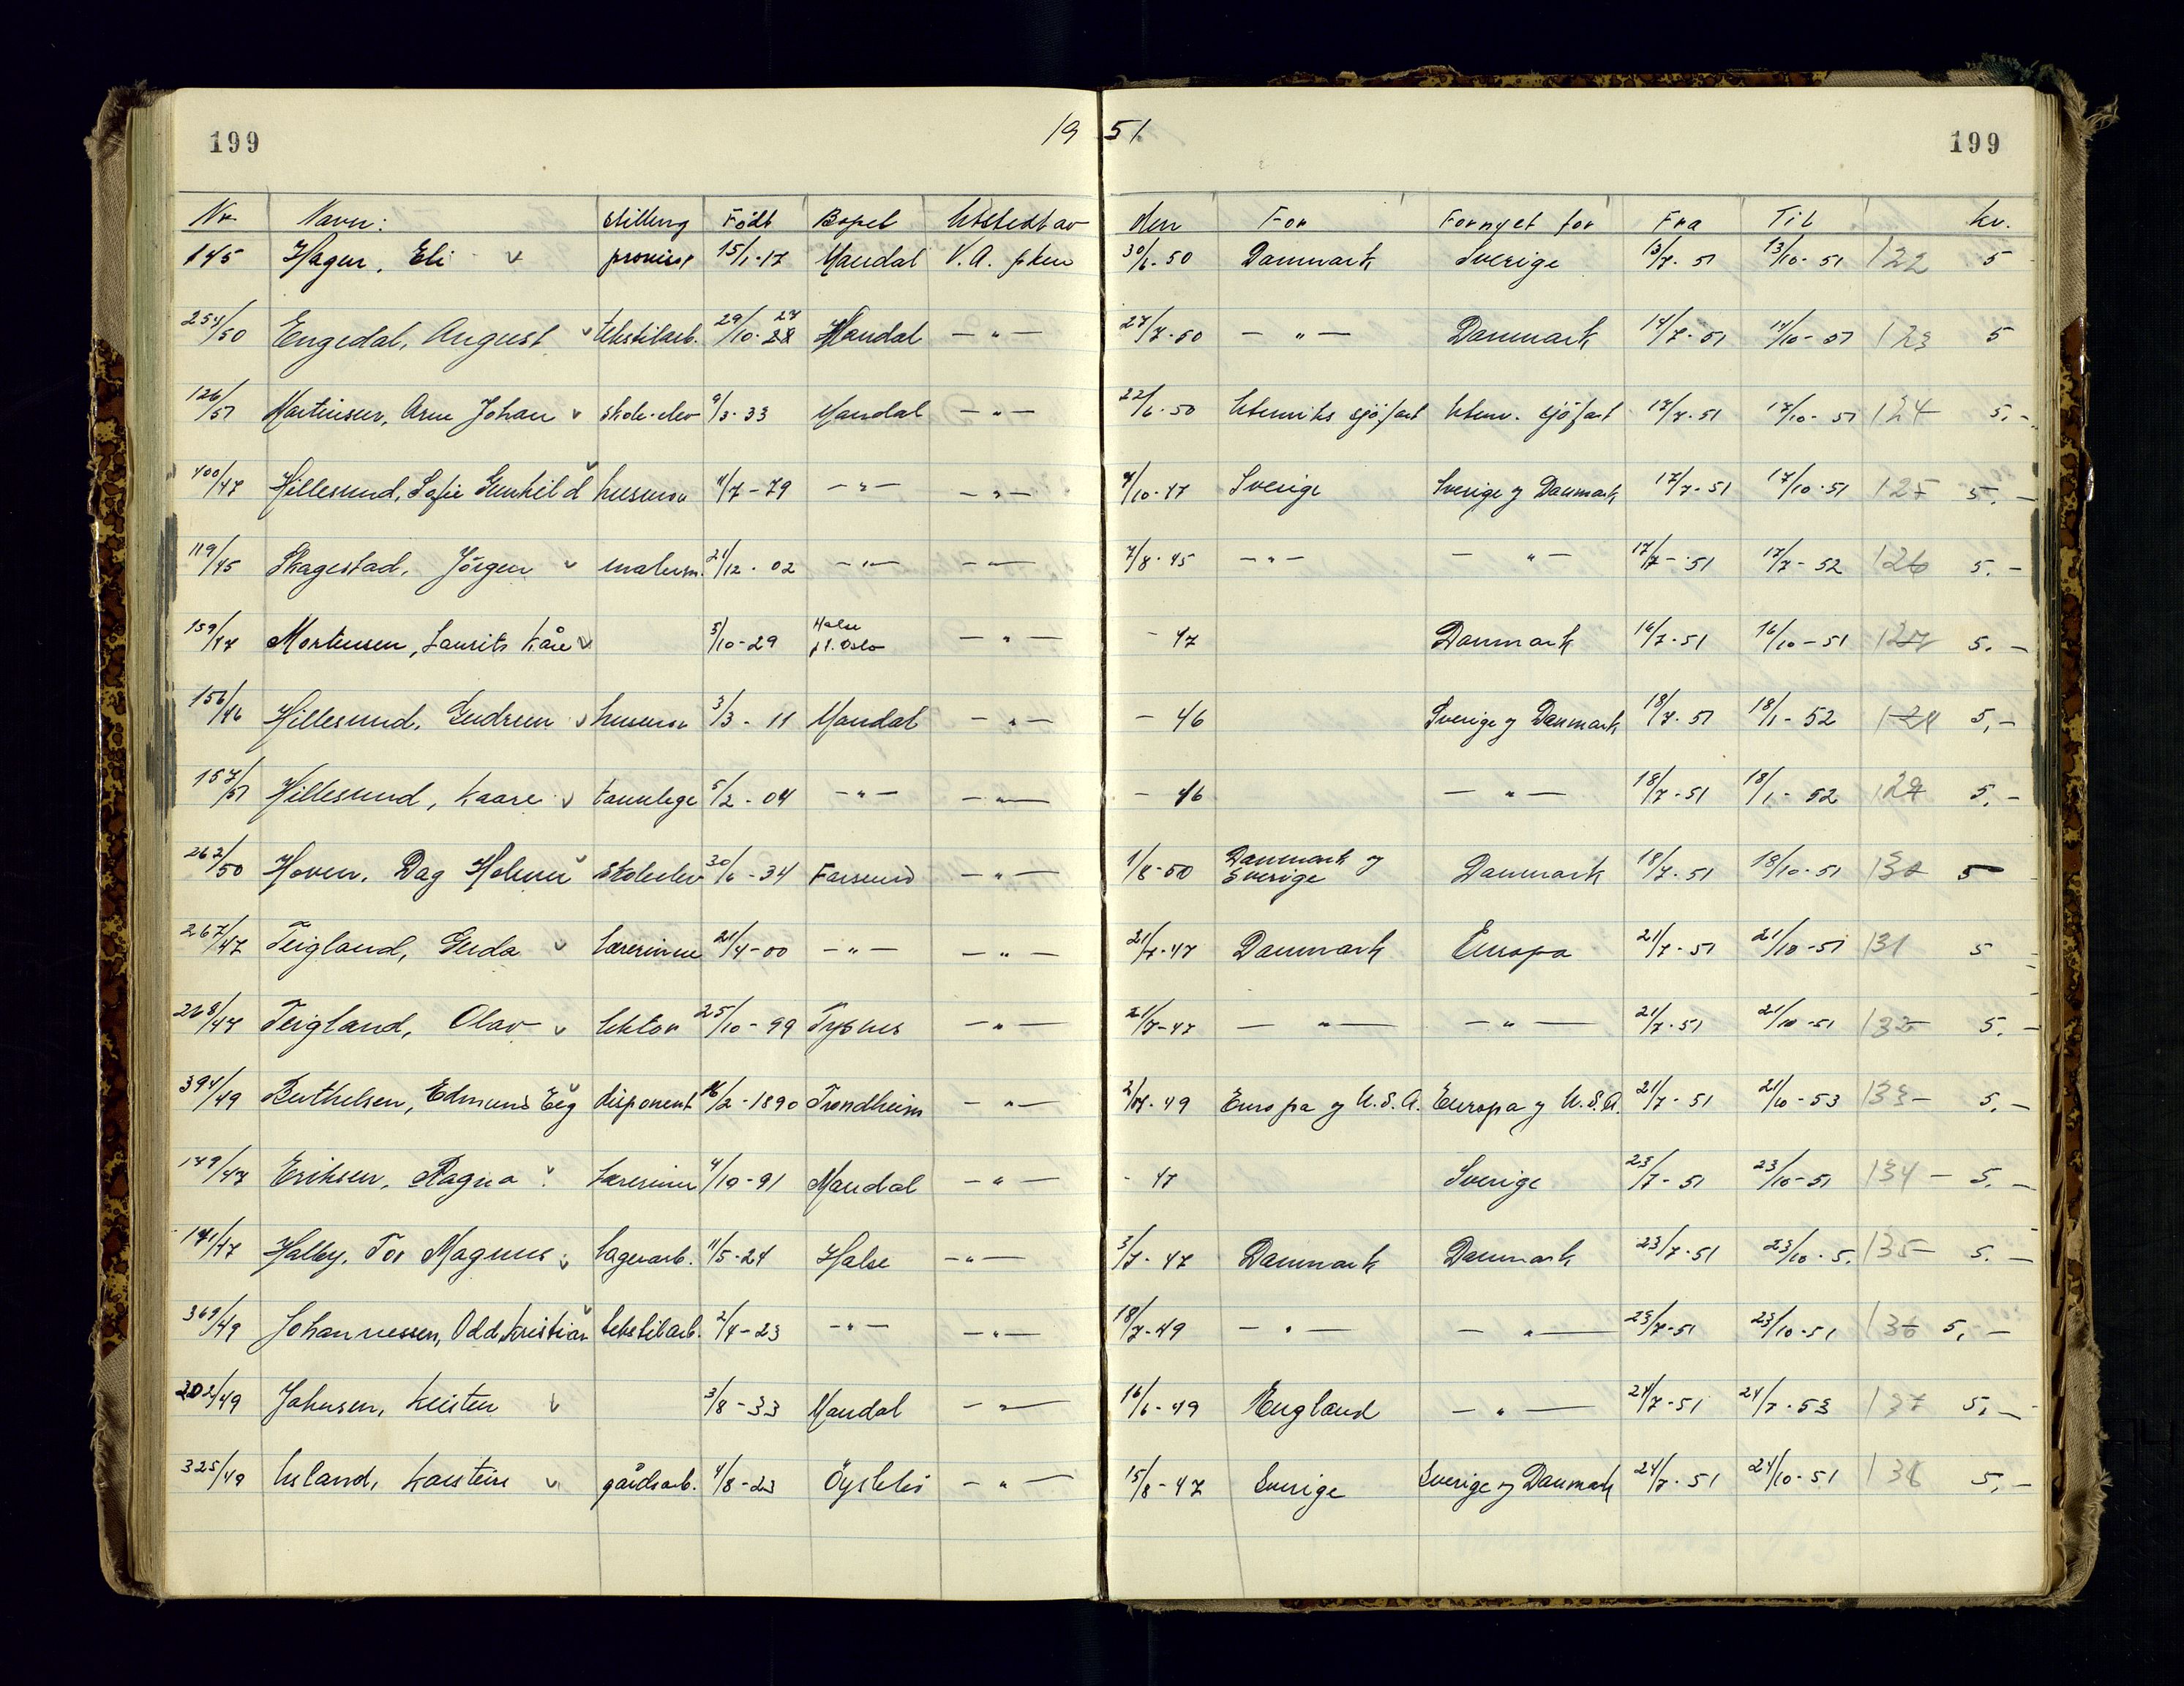 199 19 51 199
Nr. Navn: Stilling Født Bopel Utstedt av den For Fornyet for Fra Til kr.
145 Hagen, Eli v provisor 15/1-17 Mandal V.A. p.km 30/6-50 Danmark Sverige 13/7-51 13/10-51 122 5
254/50 Engedal, August v tekstilarb. 29/10-28 27 Mandal -"- 27/7-50 -"- Danmark 14/7-51 14/10-51 123 5
126/51 Martinsen, Arne Johan v skole-elev 9/3-33 Mandal -"- 22/6-50 Utenriks sjöfart Utenr. sjöfart 17/7-51 17/10-51 124 5.-
400/47 Hillesund, Sofie Gunhild v husmor 11/7-79 -"- -"- 9/10-47 Sverige Sverige og Danmark 17/7-51 17/10-51 125 5.-
119/45 Skagestad, Jörgen v malerm. 21/12-02 -"- -"- 7/8-45 -"- -"- 17/7-51 17/7-52 126 5.-
159/47 Mortensen, Laurits Kåre v 5/10-29 Halse p.t. Oslo -"- -47 Danmark 16/7-51 16/10-51 127 5.-
156/46 Hillesund, Gudrun v husmor 3/3-11 Mandal -"- -46 Sverige og Danmark 18/7-51 18/1-52 128 5,-
157/51 Hillesund, Kaare v tannlege 5/2-04 -"- -"- -46 -"- 18/7-51 18/1-52 129 5,-
262/50 Hoven, Dag v skoleelev 30/6-34 Farsund -"- 1/8-50 Danmark og Sverige Danmark 18/7-51 18/10-51 130 5
267/47 Teigland, Gerda v lærerinne 21/4-00 -"- -"- 21/7-47 Danmark Europa 21/7-51 21/10-51 131 5
268/47 Teigland, Olav v lektor 25/10-99 Tysnes -"- 21/7-47 -"- -"- 21/7-51 21/10-51 132 5.-
394/49 Berthelsen, Edmund Eeg v disponent 16/2-1890 Trondheim -"- 2/17-49 Europa og U.S.A. Europa og U.S.A. 21/7-51 21/10-53 133- 5.-
149/47 Eriksen, Ragna v lærerinne 4/10-91 Mandal -"- -47 Sverige 23/7-51 23/10-51 134- 5.-
141/47 Halby, Tor Magnus v lagerarb. 11/5-24 Halse -"- 3/7-47 Danmark Danmark 23/7-51 23/10-5. 135- 5.-
369/49 Johannessen, Odd Kristian v tekstilarb. 2/4-23 -"- -"- 18/7-49 -"- -"- 23/7-51 23/10-51 136 5,-
202/49 Jahnsen, Kirsten v 3/8-33 Mandal -"- 16/6-49 England -"- 24/7-51 24/7-53 137 5,-
325/49 Usland, Karstein v gårdsarb. 4/8-23 Öyslebö -"- 15/8-47 Sverige Sverige og Danmark 24/7-51 24/10-51 138 5,-